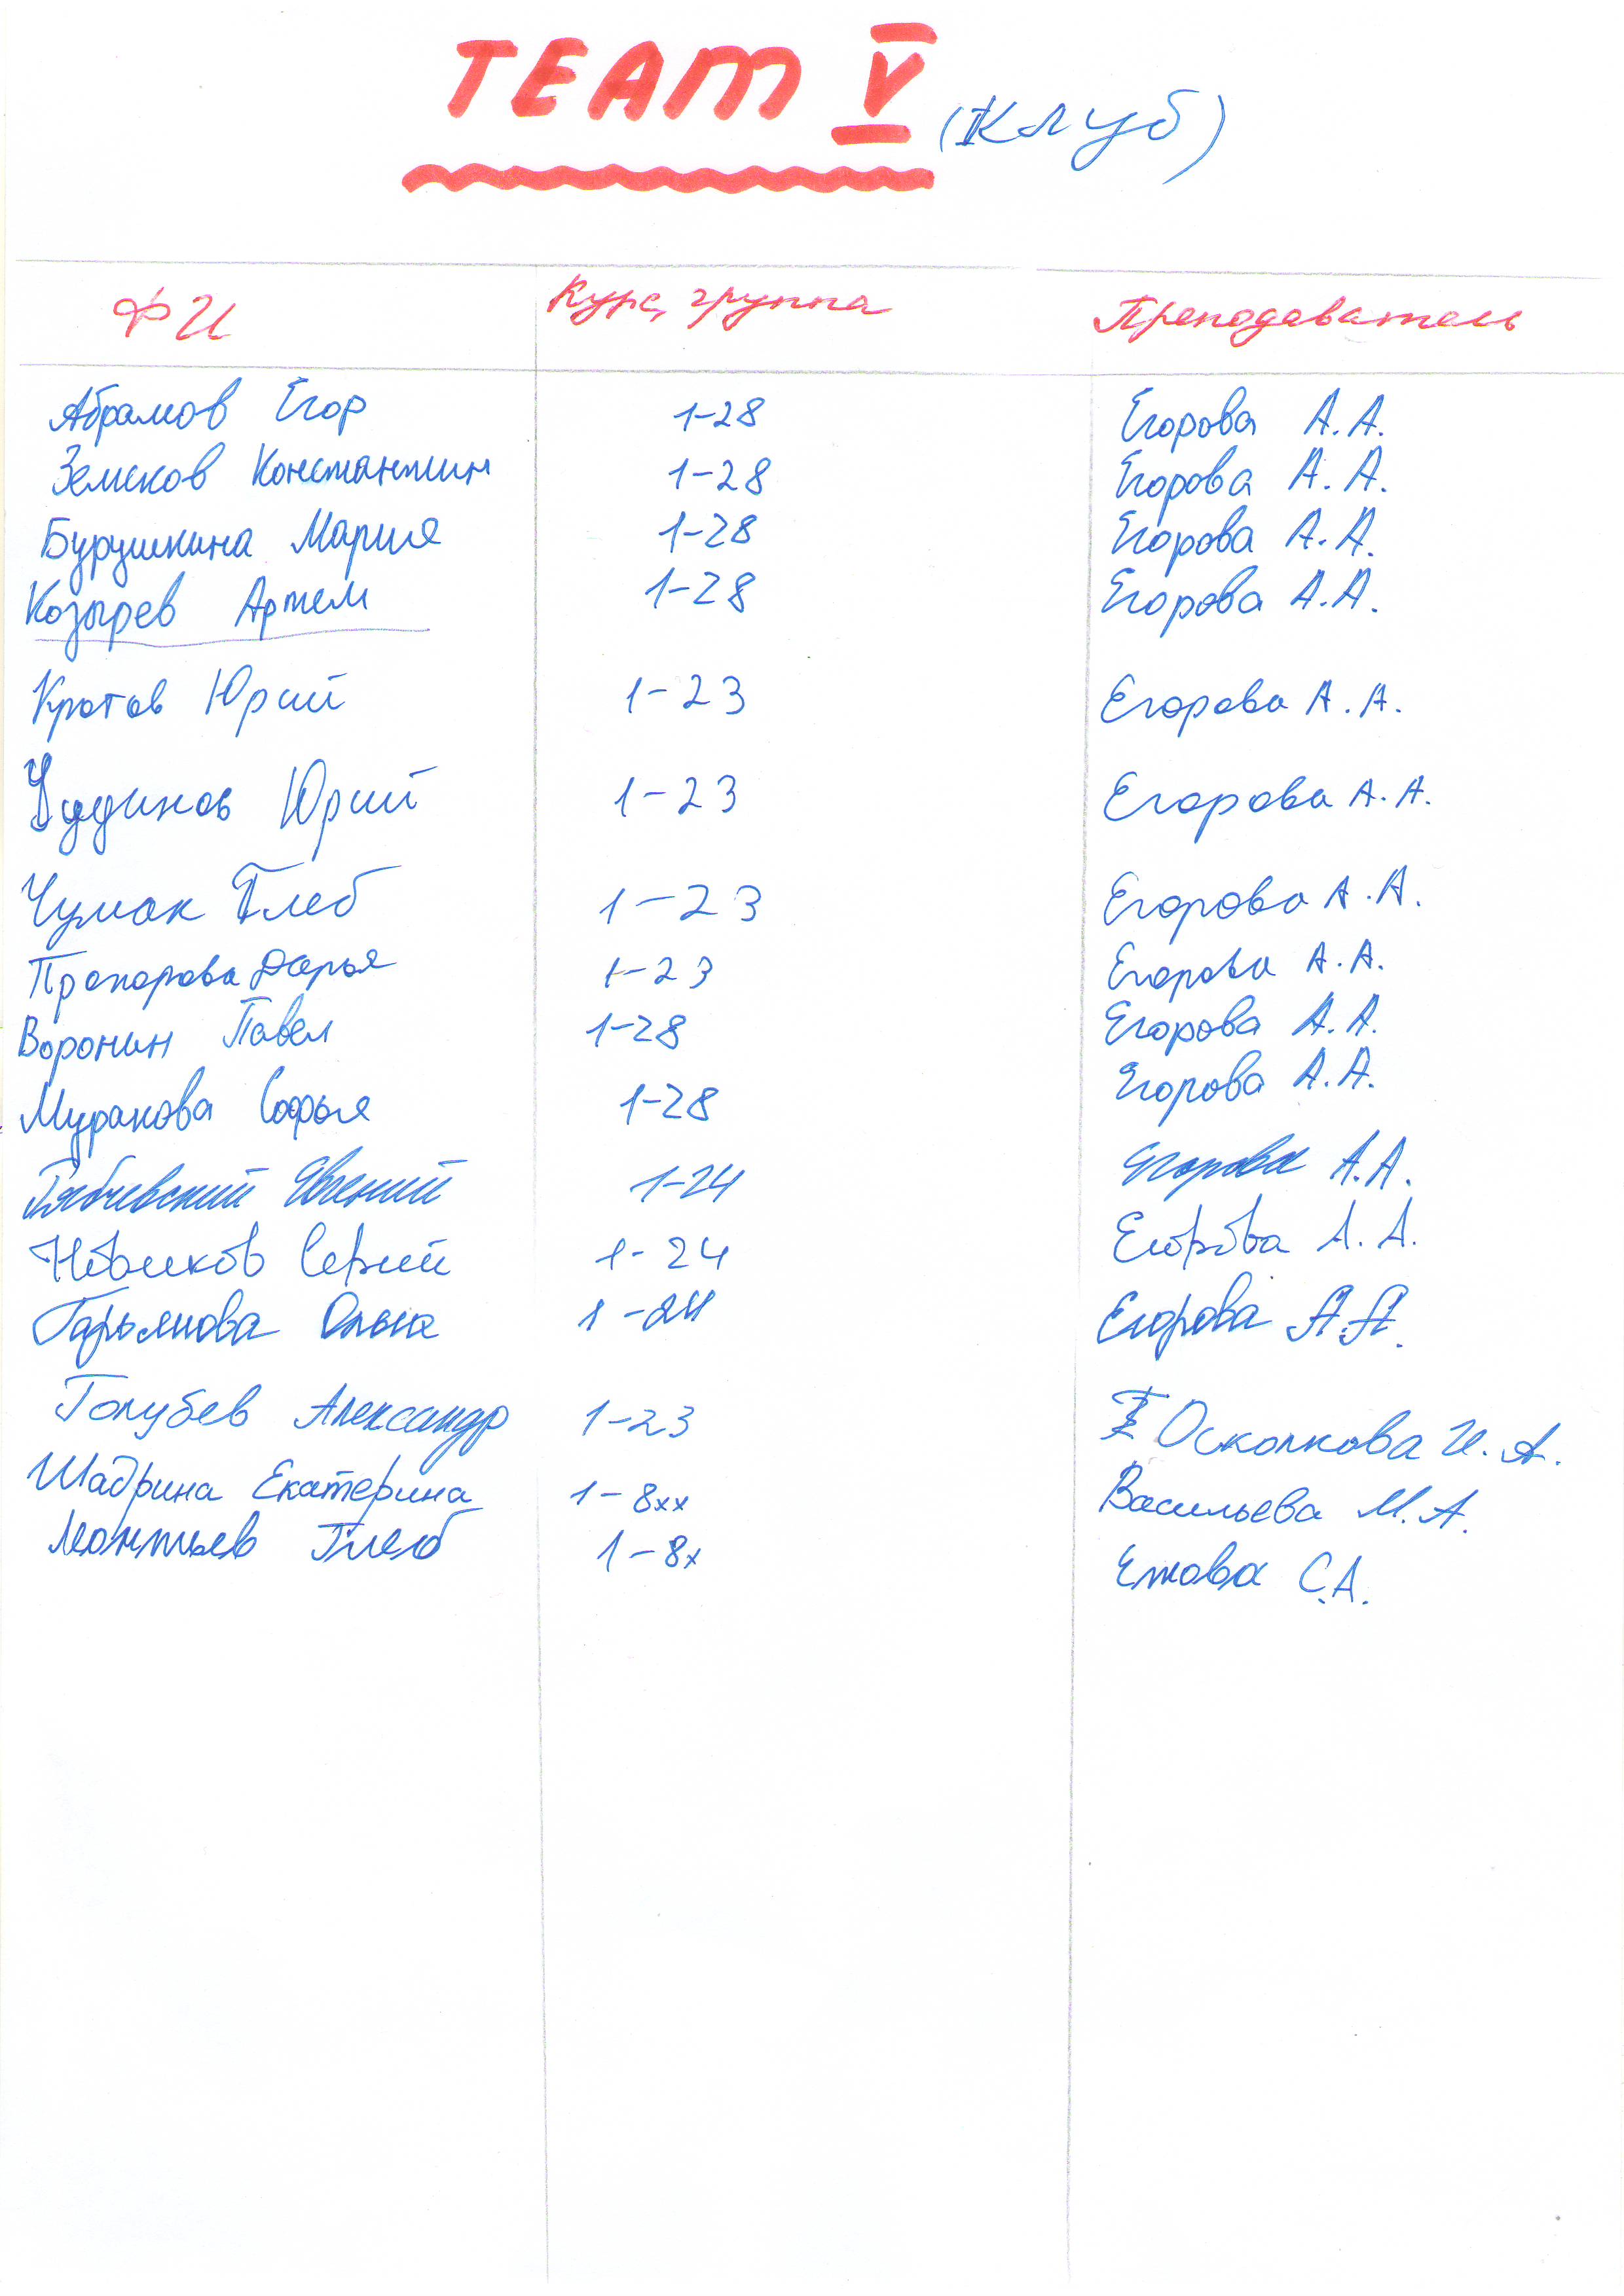 TEAM V (Клуб)
ФИ Курс, группа Преподаватель
Абрамов Егор 1-28 Егорова А.А.
Земсков Константин 1-28 Егорова А.А.
Бурушкина Мария 1-28 Егорова А.А.
Козырев Артем 1-28 Егорова А.А.
Кротов Юрий 1-23 Егорова А.А.
Чудинов Юрий 1-23 Егорова А.А.
Чумак Глеб 1-23 Егорова А.А.
Дарья 1-23 Егорова А.А.
Воронин Павел 1-28 Егорова А.А.
Муракова Софья 1-28 Егорова А.А.
Евгений 1-24 Егорова А.А.
Новиков Сергей 1-24 Егорова А.А.
Гарьянова Ольга 1-24 Егорова А.А.
Голубев Александр 1-23 Осколкова И.А.
Шадрина Екатерина 1-8хх Васильева М.А.
Леонтьев Глеб 1-8х Ежова С.А.